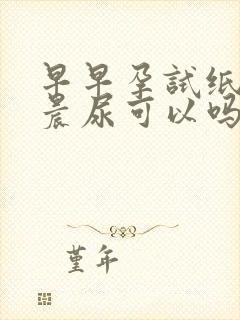 早早孕試纸
晨尿可以吗
堇年